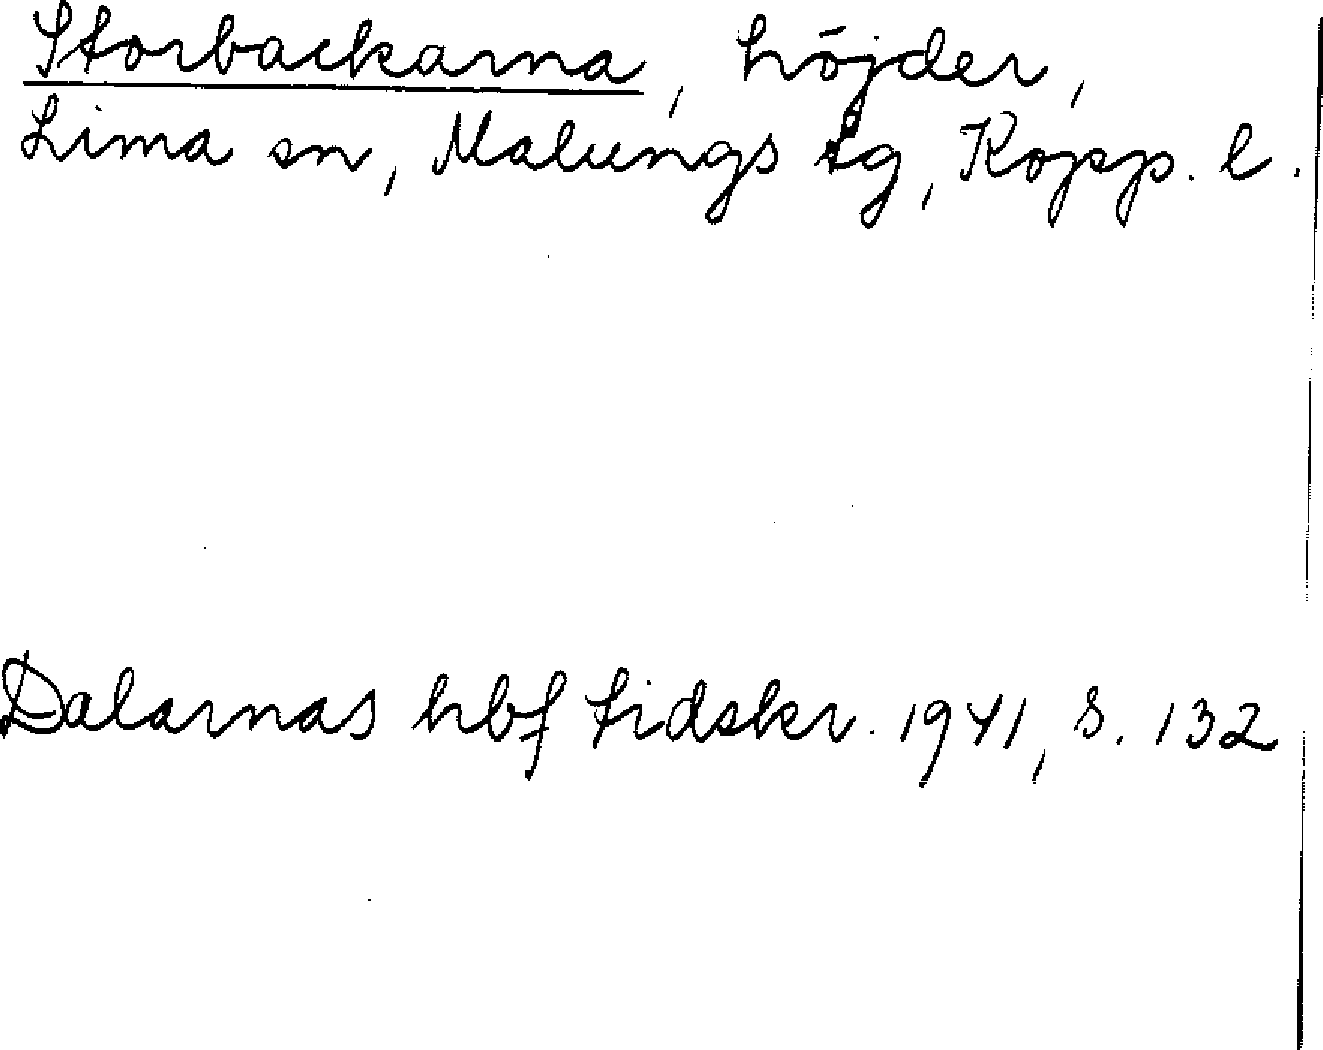 Storbackarna, höjder,
Lima sn, Malungs tg, Kopp. l.
Dalarnas hbf tidskr. 1941, s. 132